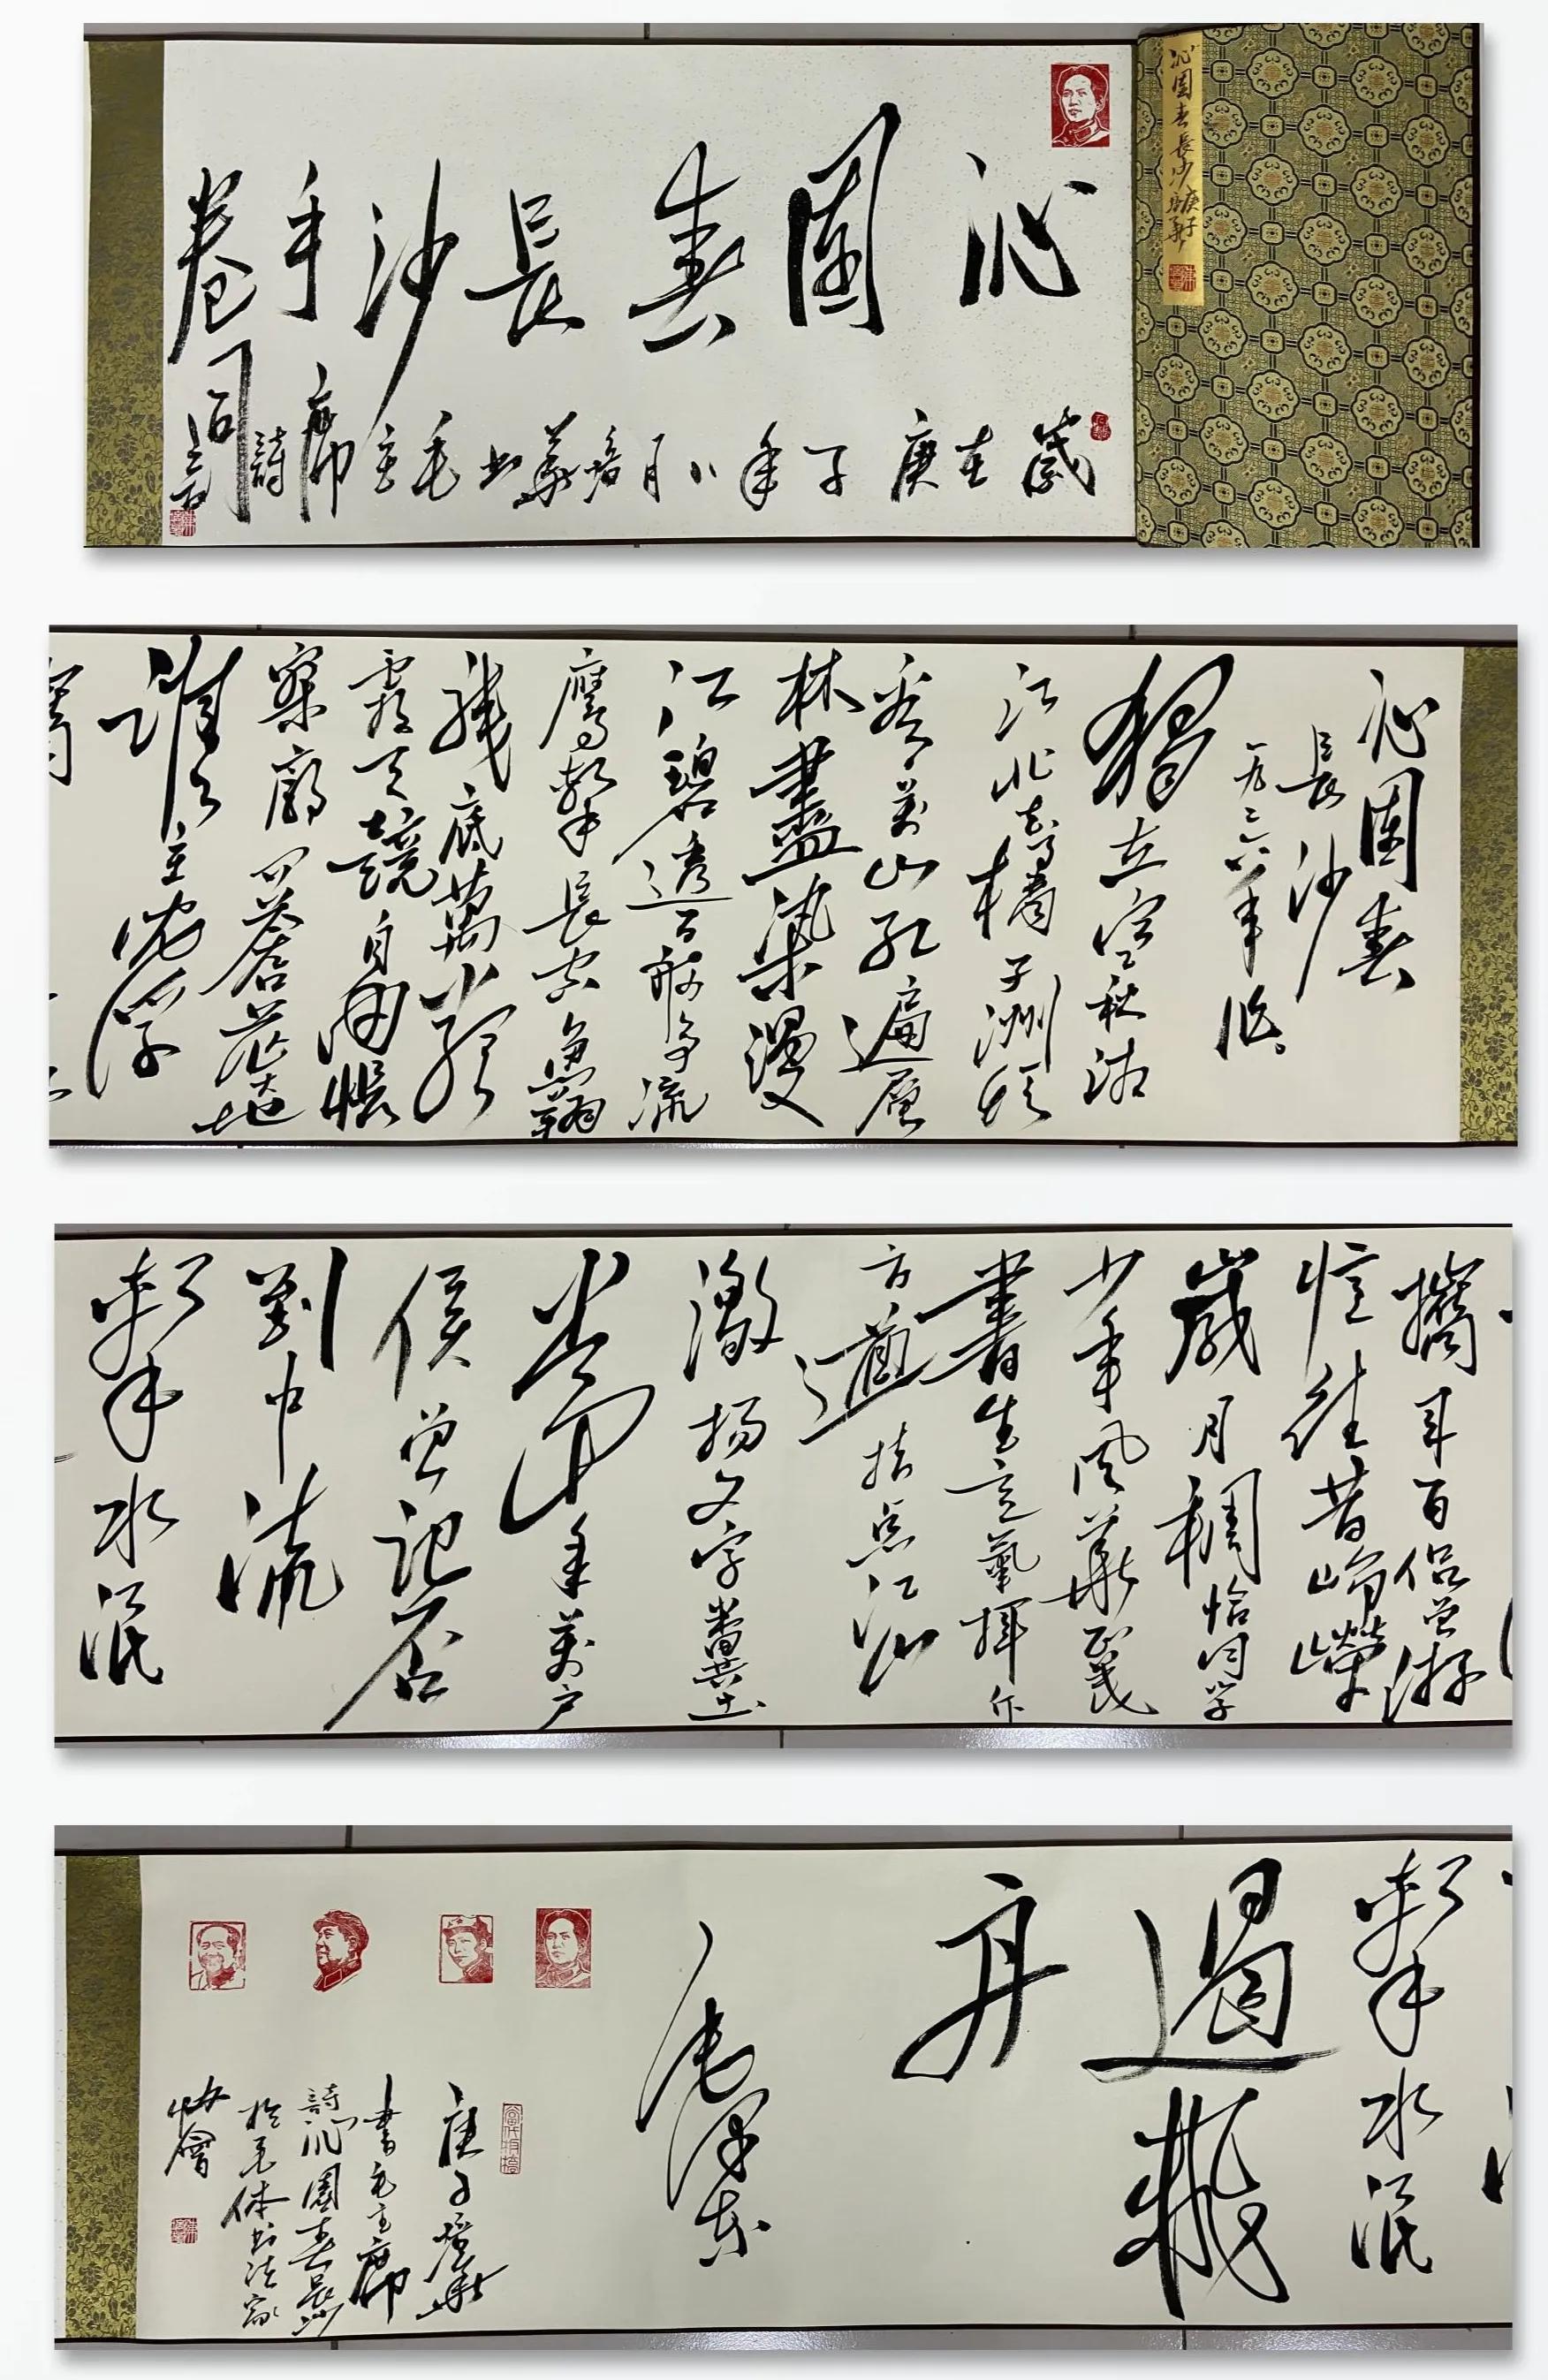 沁園春長沙 庚子 培華
沁園春長沙手卷
歲在庚子年八月培華书毛主席詩詞
沁園春
長沙
一九二六年作。
獨立寒秋湘
江北去橘子洲頭
看萬山紅遍層
林盡染漫
江碧透百舸爭流
鷹擊長空魚翔
淺底萬類
霜天競自由悵
寥廓問蒼茫大地
誰主沉浮
攜來百侣曾游
憶往昔崢嶸
歲月稠恰同學
少年風華正茂
書生意氣揮斥
方遒指点江山
激揚文字糞土
當年萬户
侯曾記否
到中流
擊水浪
擊水浪
遏飛
舟
毛澤東
庚子培華
書毛主席
詩詞沁園春長沙
於毛体书法家
協會